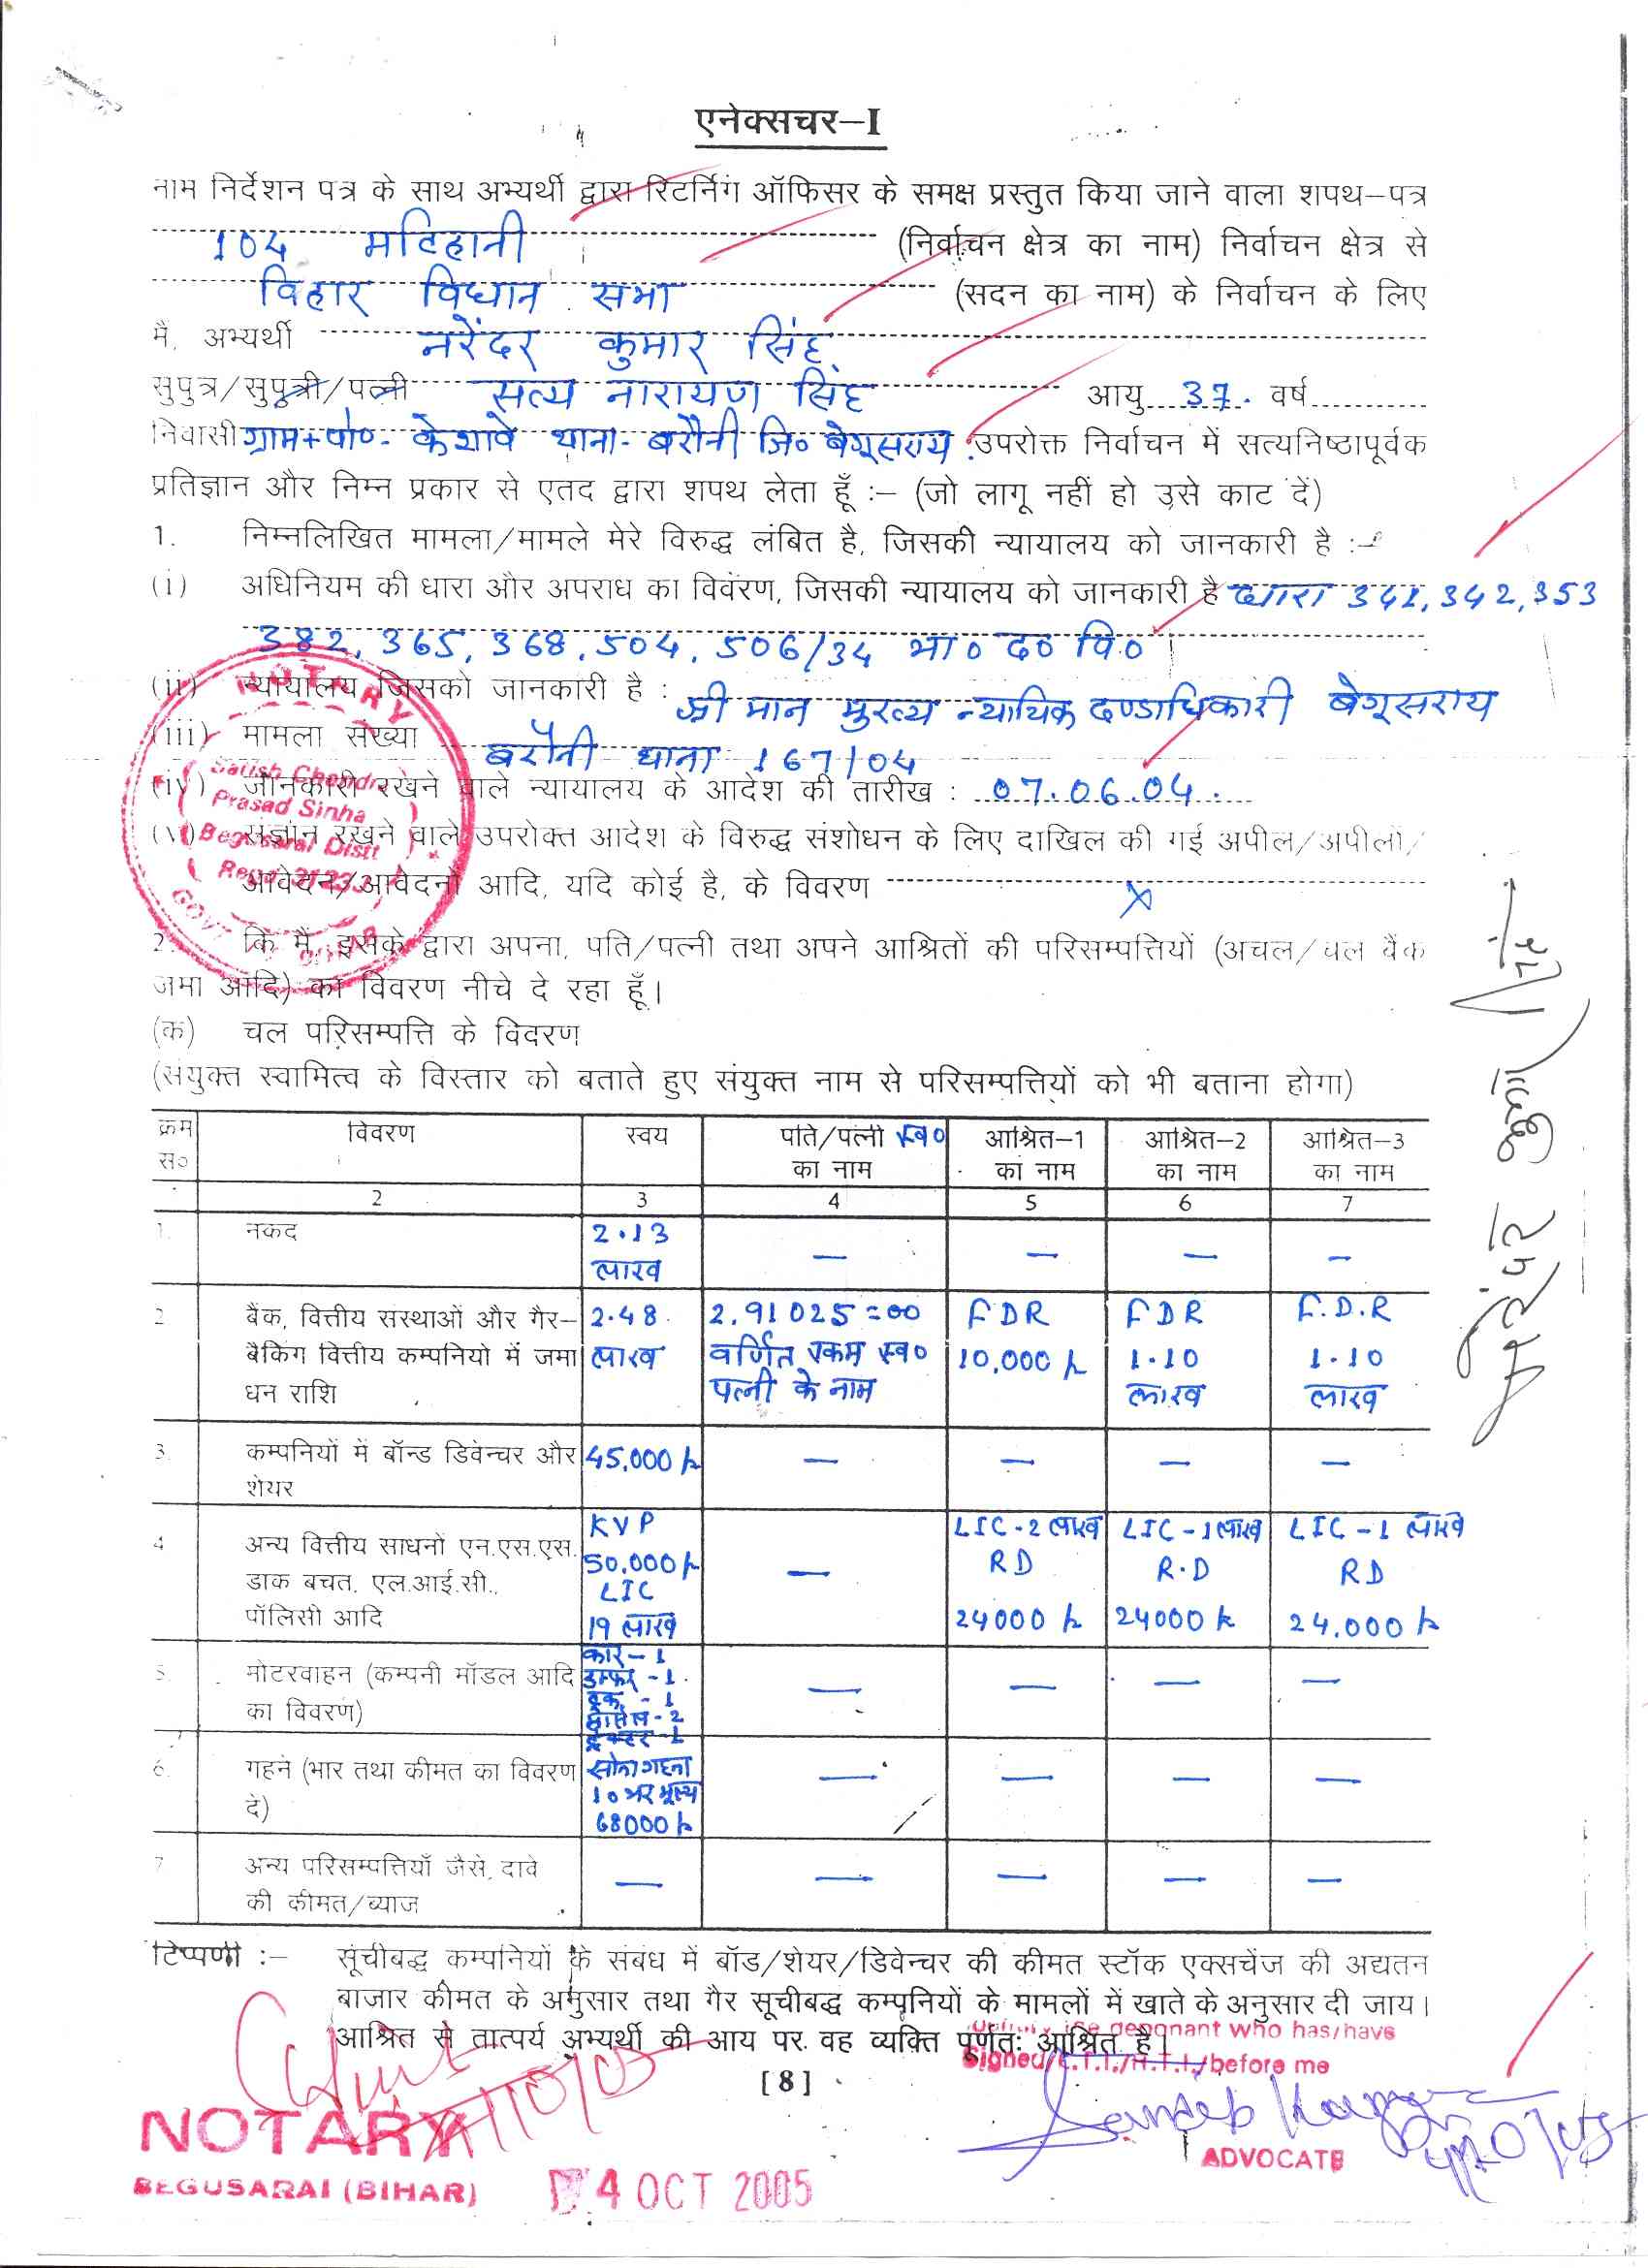 एनेक्सचर–I
नाम निर्देशन पत्र के साथ अभ्यर्थी द्वारा रिटर्निंग ऑफिसर के समक्ष प्रस्तुत किया जाने वाला शपथ–पत्र
104 मटिहानी (निर्वाचन क्षेत्र का नाम) निर्वाचन क्षेत्र से
विहार विधान सभा (सदन का नाम) के निर्वाचन के लिए
मै. अभ्यर्थी नरेंदर कुमार सिंह
सुपुत्र/सुपुत्री/पत्नी सत्य नारायण सिंह आयु 37 वर्ष
निवासी ग्राम+पो०- केशावे थाना- बरौनी जि० बेगूसराय उपरोक्त निर्वाचन में सत्यनिष्ठापूर्वक
प्रतिज्ञान और निम्न प्रकार से एतद द्वारा शपथ लेता हूँ :– (जो लागू नहीं हो उसे काट दें)
1. निम्नलिखित मामला/मामले मेरे विरुद्ध लंबित है, जिसकी न्यायालय को जानकारी है :–
(i) अधिनियम की धारा और अपराध का विवरण, जिसकी न्यायालय को जानकारी है धारा 341, 342, 353
382, 365, 368, 504, 506/34 भा० द० वि०
(ii) न्यायालय जिसको जानकारी है : श्री मान मुख्य न्यायिक दण्डाधिकारी बेगूसराय
(iii) मामला संख्या बरौनी थाना 167/04
(iv) जानकारी रखने वाले न्यायालय के आदेश की तारीख : 07.06.04.
(v) संज्ञान रखने वाले उपरोक्त आदेश के विरुद्ध संशोधन के लिए दाखिल की गई अपील/अपीलों/
आवेदन/आवेदनों आदि, यदि कोई है, के विवरण X
NOTARY
Satish Chandra
Prasad Sinha
Begusarai Distt
2. कि मैं, इसके द्वारा अपना, पति/पत्नी तथा अपने आश्रितों की परिसम्पत्तियों (अचल/चल बैंक
जमा आदि) का विवरण नीचे दे रहा हूँ।
(क) चल परिसम्पत्ति के विवरण
(संयुक्त स्वामित्व के विस्तार को बताते हुए संयुक्त नाम से परिसम्पत्तियों को भी बताना होगा)
क्रम सं० विवरण स्वय पति/पत्नी स्व० का नाम आश्रित–1 का नाम आश्रित–2 का नाम आश्रित–3 का नाम
2 3 4 5 6 7
1. नकद 2.13 लाख — — — —
2 बैंक, वित्तीय संस्थाओं और गैर– 2.48 2.91025=00 FDR FDR F.D.R
बैकिंग वित्तीय कम्पनियो में जमा लाख वर्णित रकम स्व० 10,000/- 1.10 1.10
धन राशि पत्नी के नाम लाख लाख
3. कम्पनियों में बॉन्ड डिवेन्चर और 45,000/- — — — —
शेयर
4 अन्य वित्तीय साधनों एन.एस.एस. KVP 50,000/- — LIC-2 लाख LIC-1 लाख LIC-1 लाख
डाक बचत, एल.आई.सी., LIC RD R.D RD
पॉलिसी आदि 19 लाख 24000/- 24000/- 24,000/-
5. मोटरवाहन (कम्पनी मॉडल आदि कार-1 डम्फर-1 — — — —
का विवरण) ट्रक-1 2 ट्रेक्टर-1
6. गहने (भार तथा कीमत का विवरण सोना गहना — — — —
दे) 10 भर मूल्य 68000/-
7 अन्य परिसम्पत्तियाँ जैसे, दावे — — — — —
की कीमत/ब्याज
टिप्पणी :– सूंचीबद्ध कम्पनियों के संबंध में बॉड/शेयर/डिवेन्चर की कीमत स्टॉक एक्सचेंज की अद्यतन
बाजार कीमत के अनुसार तथा गैर सूचीबद्ध कम्पनियों के मामलों में खाते के अनुसार दी जाय।
आश्रित से तात्पर्य अभ्यर्थी की आय पर वह व्यक्ति पूर्णतः आश्रित है।
deponant who has/have
Signed/L.T.I./R.T.I./before me
[8]
Sandeep Kumar
NOTARY
ADVOCATE
BEGUSARAI (BIHAR)
4 OCT 2005
नरेंदर कुमार सिंह